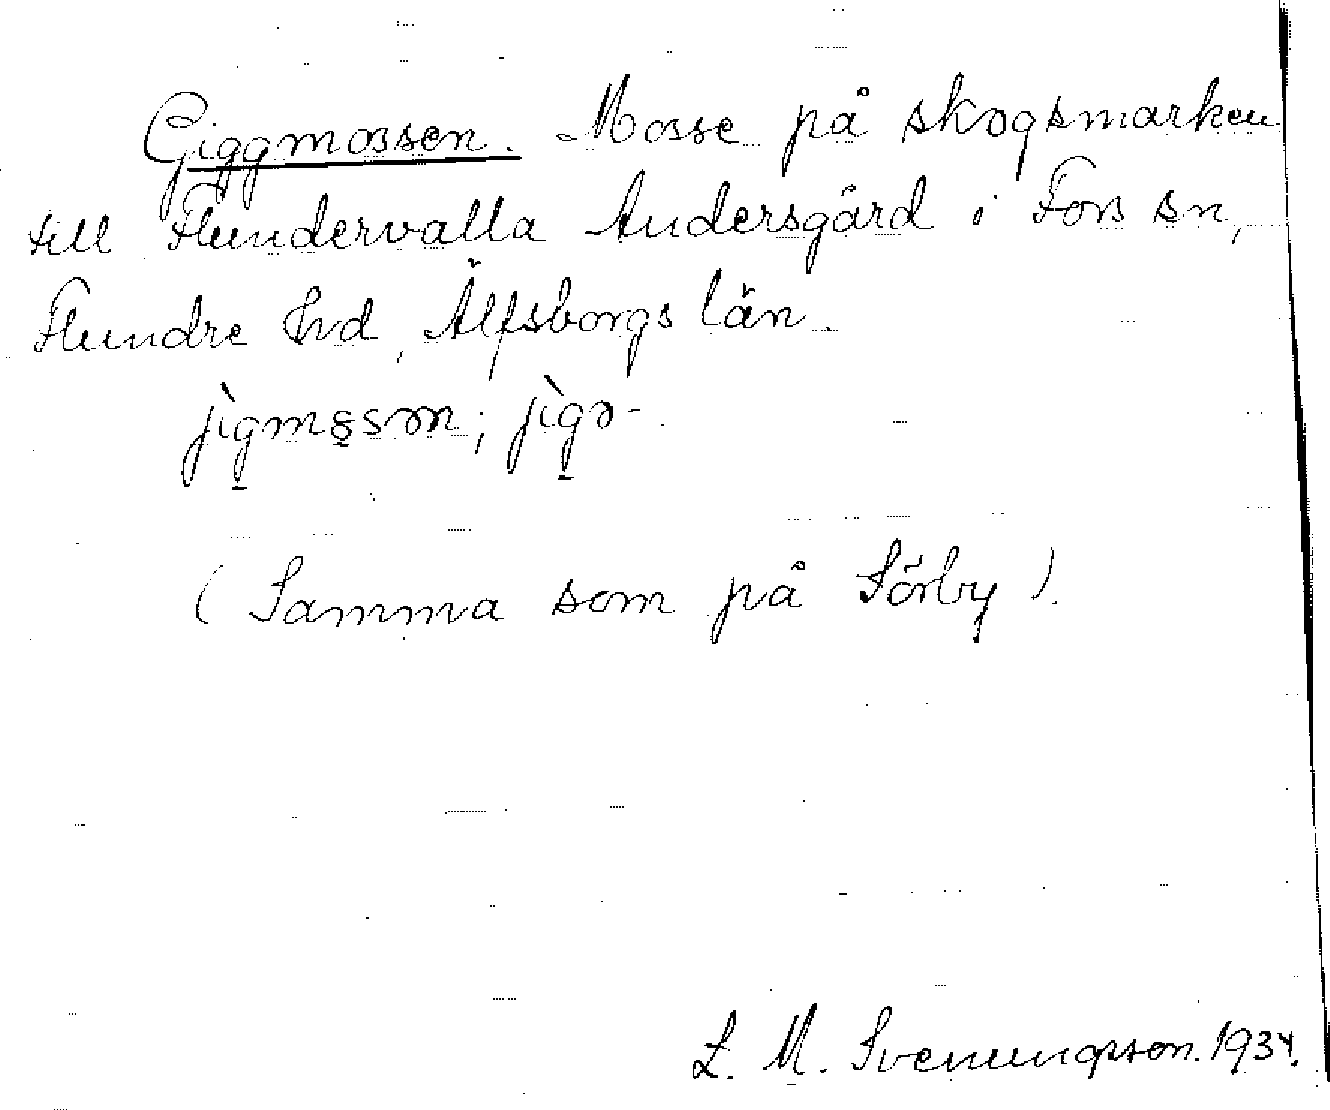 Giggmossen. Mosse på skogsmarken
till Flundervalla Andersgård i Fors sn,
Flundre hd, Älfsborgs län.
jìgms̨sən; jìgə-.
(Samma som på Sörby).
L. M. Svenungsson. 1934.